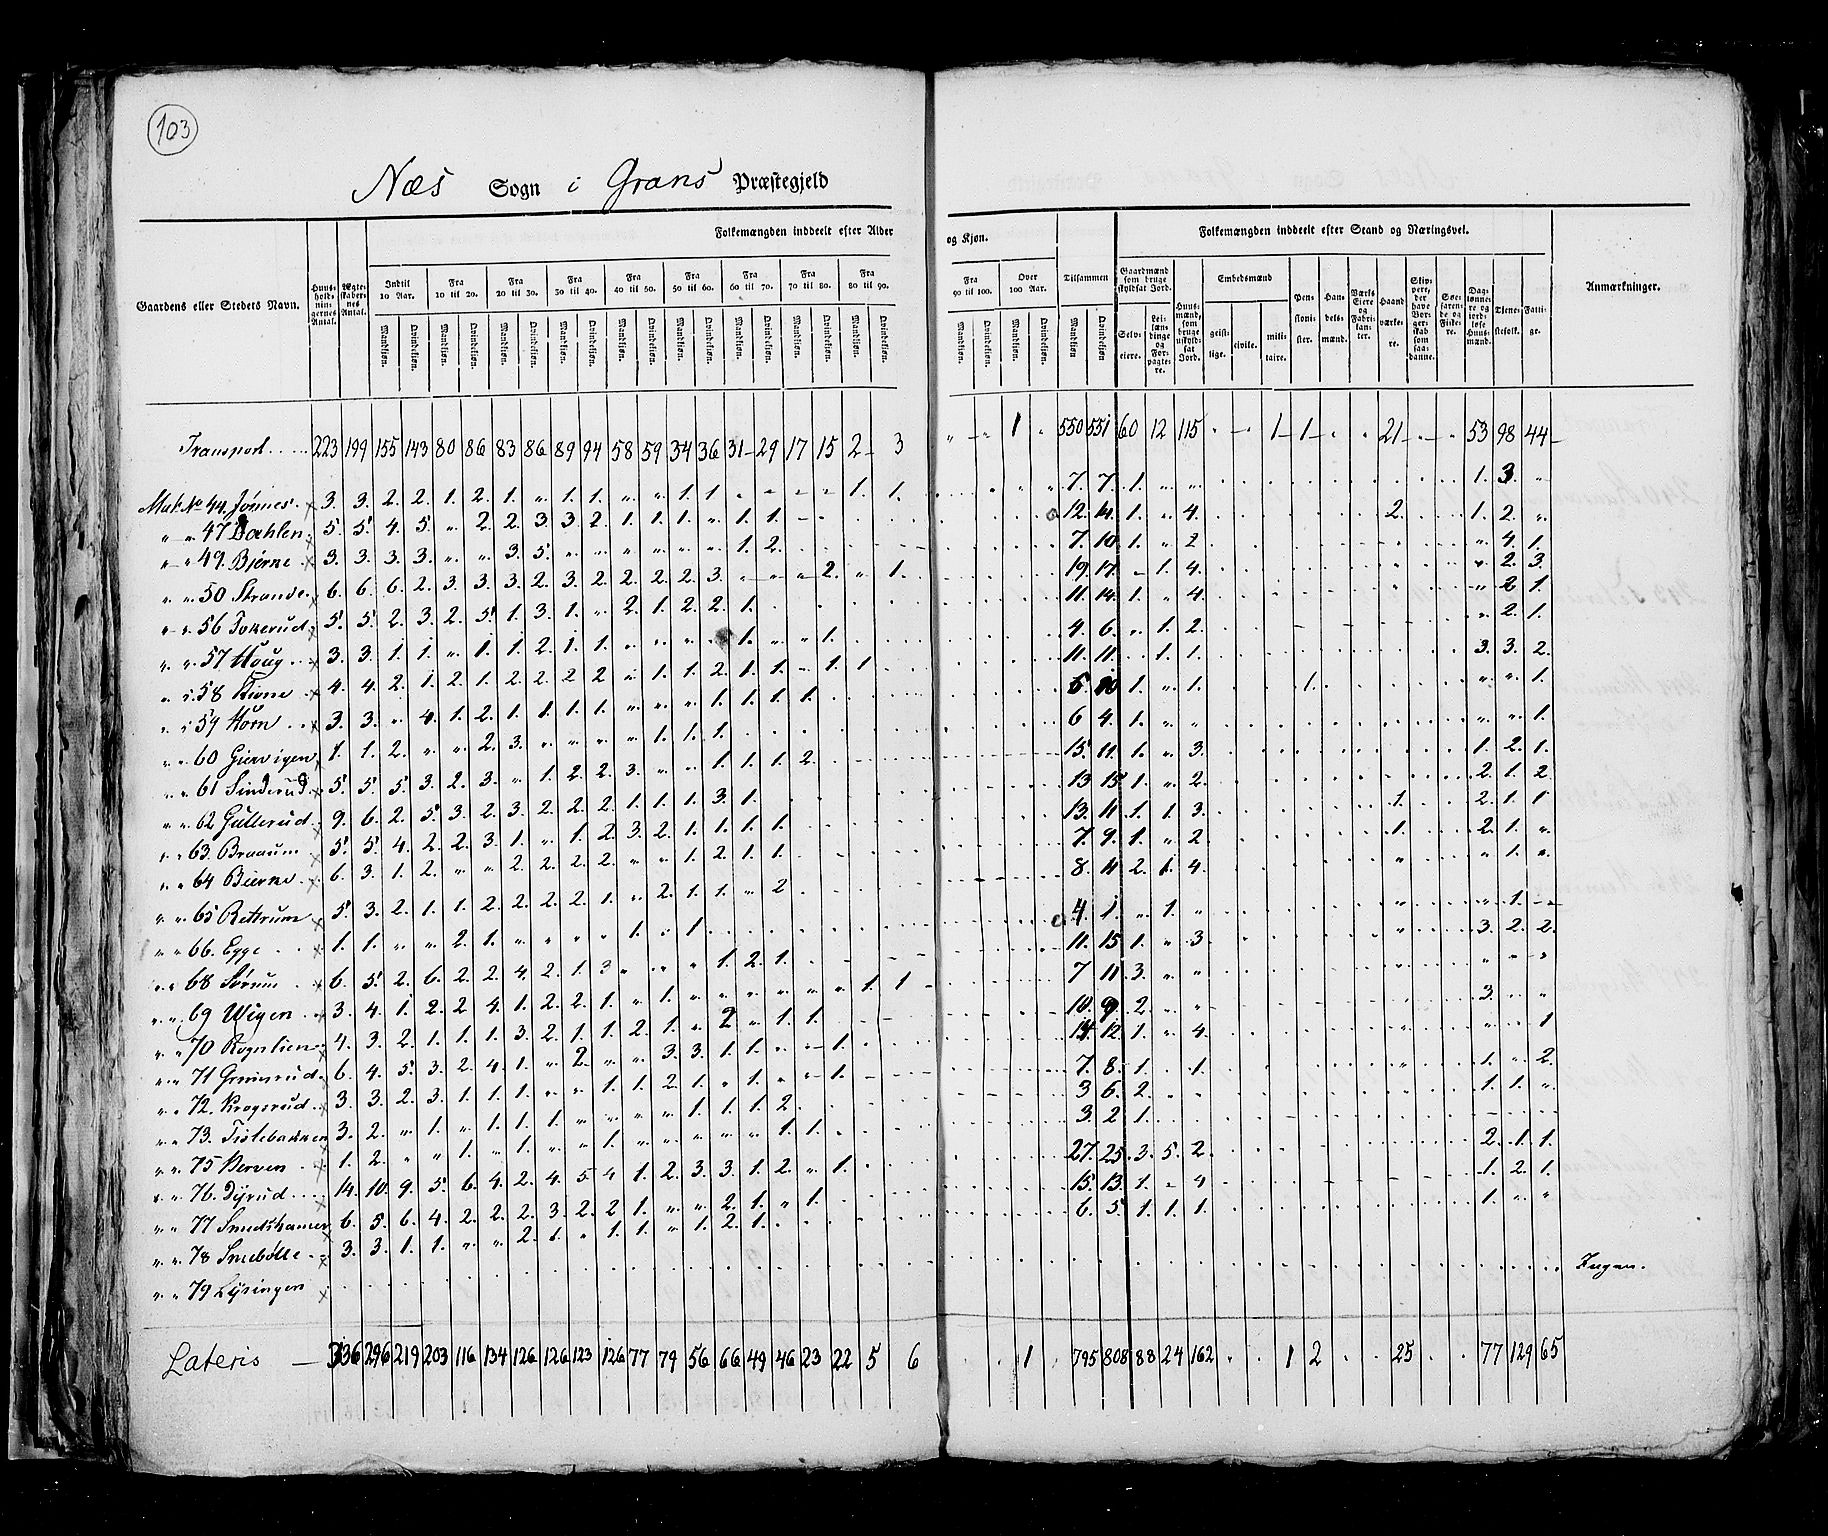 103
Næs Sogn i Grans Præstegjeld
Gaardens eller Stedets Navn.
Huusholdningernes Antal.
Ægteskabernes Antal.
Folkemængden inddeelt efter Alder og Kjøn.
Indtil 10 Aar. Fra 10 til 20. Fra 20 til 30. Fra 30 til 40. Fra 40 til 50. Fra 50 til 60. Fra 60 til 70. Fra 70 til 80. Fra 80 til 90. Fra 90 til 100. Over 100 Aar. Tilsammen
Mandkjøn. Qvindekjøn. Mandkjøn. Qvindekjøn. Mandkjøn. Qvindekjøn. Mandkjøn. Qvindekjøn. Mandkjøn. Qvindekjøn. Mandkjøn. Qvindekjøn. Mandkjøn. Qvindekjøn. Mandkjøn. Qvindekjøn. Mandkjøn. Qvindekjøn. Mandkjøn. Qvindekjøn. Mandkjøn. Qvindekjøn. Mandkjøn Qvindekjøn
Folkemængden inddeelt efter Stand og Næringsvei.
Gaardmænd som bruge skyldsat Jord.
Selveiere.
Leilændinge og Forpagtere.
Huusmænd, som bruge uskyldsat Jord.
Embedsmænd
geistlige. civile. militaire.
Pensionister.
Handelsmænd.
Værks Eiere og Fabrikanter.
Haandværkere.
Skippere, der have Borgerskab som saadanne.
Søefarende og Fiskere.
Daglønnere og jordløse Huusmænd.
Tjenestefolk.
Fattige.
Anmærkninger.
Transport 223 199 155 143 80 86 83 86 89 94 58 59 34 36 31 29 17 15 2 3 1 550 551 60 12 115 1 1 21 53 98 44
Mat. No 44 3. 3. 2. 2. 1. 2. 1. " 1. 1. " " 1. 1. " " " " 1. 1. 7. 7. 1. " " 1. 3. "
" " 47 Dæhlen 5. 5. 4. 5. " 2. 2. 3. 3. 2. 1. 1. 1. " 1. 1. 12. 14. 1. " 4. 2. 1. 2. "
" " 49. Bjerne 3. 3. 3. 3. " " 3. 5. " " " " " " 1. 2. 7. 10. 1. " 2. " 4. 1.
" " 50 Strande 6. 6. 6. 2. 3. 3. 3. 2. 3. 2. 2. 2. 2. 3. " " " 2. " 1. 19. 17. " 1. 4. " 2. 3.
" " 56 Tokerud 5. 5. 2. 3. 2. 5. 1. 3. 1. " 2. 1. 2. 2. 1. 11. 14. 1. " 4. " 2. 1.
" " 57 Houg 3. 3. 1. 1. " 1. 1. 2. 1. 1. " " " " 1. " " 1. 4. 6. " 1. 2. " 2. 1.
" " 58 4. 4. 2. 1. 2. 1. 2. 2. 2 2 " 1. 1. 2. 1. 1. " 1. 1. 11. 11. 1. 1. 3. 3. 2.
" " 59 Horn 3. 3. " 4. 1. 2. 1. 1. 1. 1. " " " 1. 1. 1. 1. 10 1. " 1. 1. " " 1.
" " 60 Giervigen 1. 1. 2. " " 2. 3. " " " " 1. 1. 1. 6 4. 1. " " " " 1.
" " 61 Sinderud 5. 5. 5. 3. 2. 3. " 1. 2. 2. 3. " " 1. 1. 1. 2. 15. 11. 1. " 3. 1. 2. 1.
" " 62 Gullerud 9. 6. 2. 5. 3. 2. 3. 2. 2. 2. 1. 1. 1. 3. 1. 13 15 1. " 2. 2. 1. 2.
" " 63. Braaum 5. 5. 4. 2. 2. 3. 1. " 1. 2. 3. 2. 1. 1. 1. 1. 13. 11 1. 1. 3. 1. 2. 1. 1
" " 64 Bierke 6. 3. 1. 2. " " 2. 2. 2. 2. " " 1. 2. 1. 1. 7. 9. 1. " 2. 1. 2. 1. "
" " 65 Rettrum 5. 3. 2. 1. 1. 2. 2. 2. 2. 1. " 2. 1. 1. " 2 8. 11 2. 1. 4. " " 1. "
" " 66. Egge 1. 1. " " 2. 1. " " " " 1. " 1. 4. 1. " 1. " " " 1.
" " 68 Sørum 6. 5. 2. 6. 2. 2. 4. 2. 1. 3 " " " 1. 2. 1. 11. 15 1. " 3. " 3. 2. 2.
" " 69 Wigen 3. 4. 1. 2. 2 4. 1. 2. 2. 1. " 1. " " " " " " 1. 1 7 11 3. " " " " "
" " 70 Rognlien 4. 3. 2. 1. 1. 1. 3. 2. 1. 1. 2. 1. " 2 " 1. 1. 10. 9. 2. " " 3. " "
" " 71 Grimsrud 6. 4. 5. 3. 2. 4. 1. " 2. " " 3. 3. 1. 1. " " 1. 14 12. 1. " 4. " " 1
" " 72. Krogsrud 3. 3. 2. 3. 1. 1. 1. " " 1. 1. 2. 1. " 1. " " 1. 7. 8. 1. 1. " 1. " 2.
" " 73. Tislebakken 3. 2. " 1. " 1. 1. 1. " " " " 1. 1. 1. 2. 3 6. 2. " " 1. 1. "
" " 75 1. 2. " " 1. " 1. " " 1. " " " " " 1. 1. 3. 2 1.
" " 76. Dyrud 14. 10. 9. 5. 6. 4. 2. 4. 5 4 1. 2. 3. 3. 1. 2. " 1. 27. 25. 3. 5. 2. 2. 1. 1.
" " 77 Smedshamer 6. 5. 6. 4. 2. 2. 2. 3. 2. 2. 1. " " 2. 1. " 1. 15. 13. 1. " " 1. 2. 1.
" " 78 Sniebølle 3. 3. 1. 1. " " 2. 1. " 1. 1. " 1. 2. 1. 6. 5. 1. 1. 1. 1. " "
" " 79 Lysingen Ingen.
Lateris 336 296 219 203 116 134 126 126 123 126 77 79 56 66 49 46 23 22 5 6 1 795 808 88 24 162 1 2 25 77 129 65